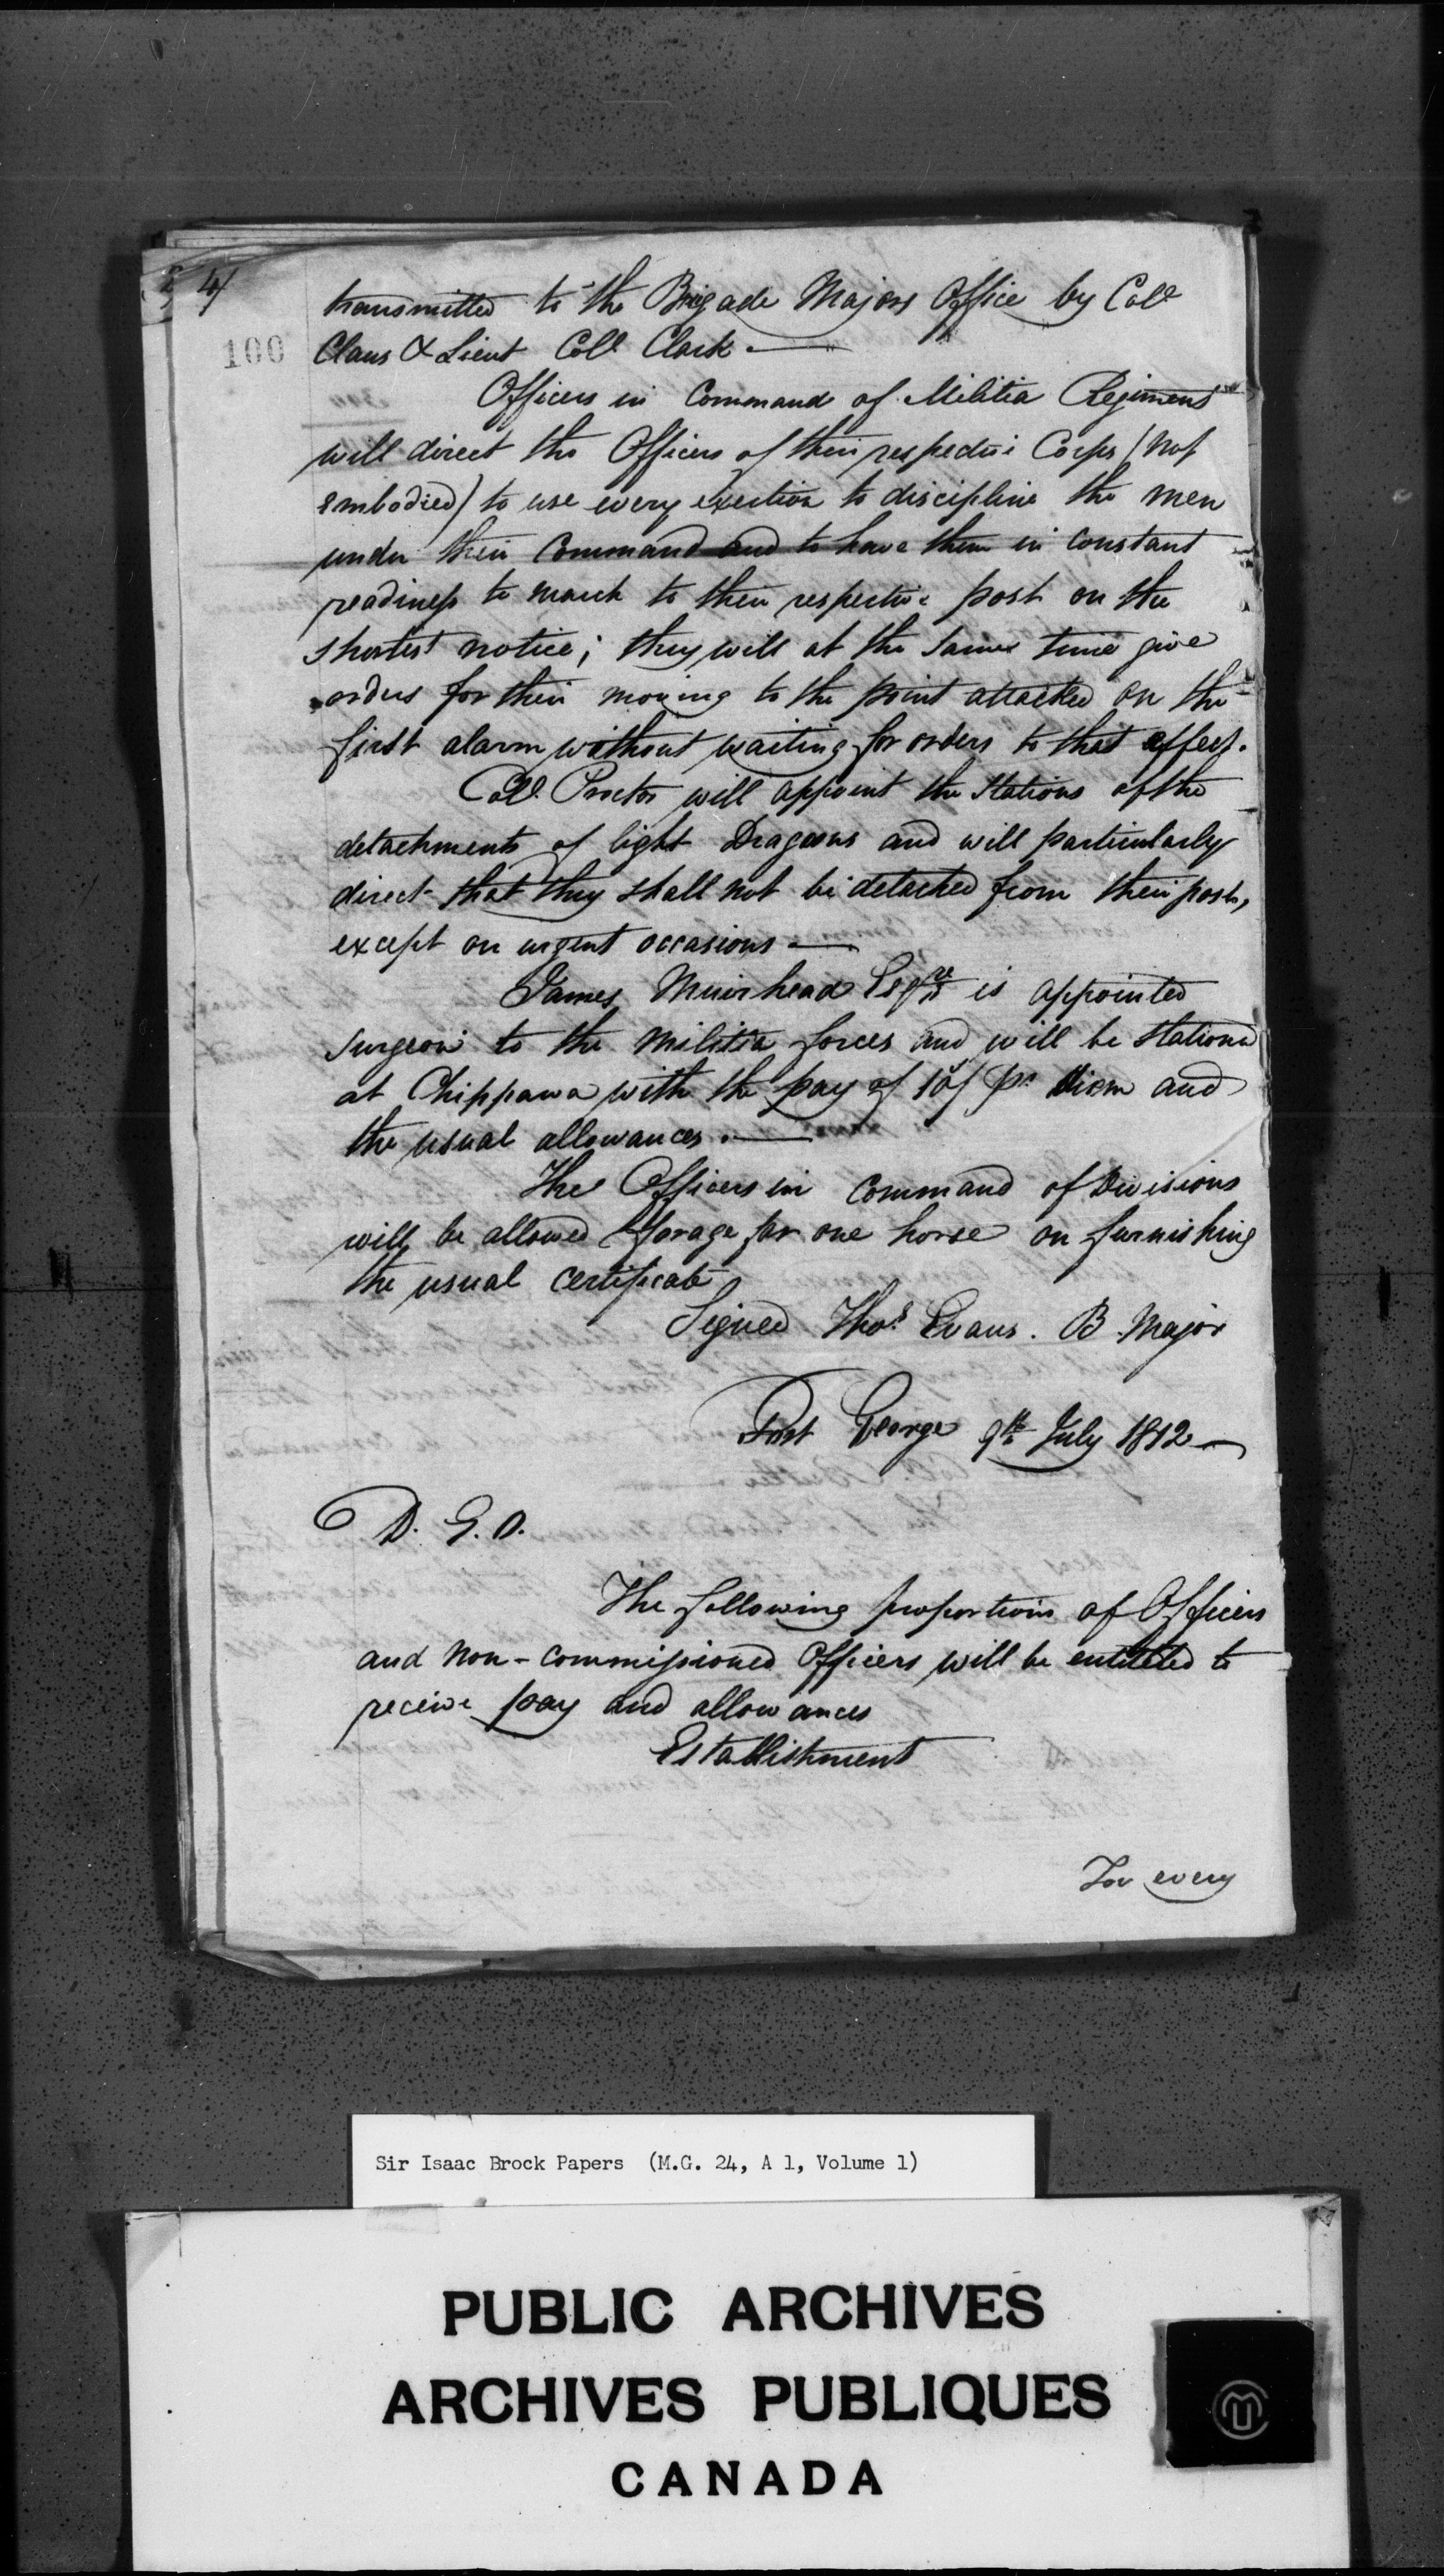 4/
transmitted to the Brigade Majors Office by Coll
100
Claus & Lieut Coll Clark.
Officers in Command of Militia Regiments
will direct the Officers of their respective Corps (not
embodied) to use every exertion to discipline the men
under their Command and to have them in constant
readiness to march to their respective post on the
shortest notice; they will at the same time give
orders for their moving to the point attacked on the
first alarm without waiting for orders to that effect.
Coll. Proctor will appoint the Stations of the
detachments of light Dragoons and will particularly
direct that they shall not be detached from their posts,
except on urgent occasions.
James Muirhead Esqre is appointed
Surgeon to the Militia forces and will be stationed
at Chippawa with the pay of 10/ pr diem and
the usual allowances.
The Officers in Command of Divisions
will be allowed forage for one horse on furnishing
the usual certificate
Signed Thos. Evans. B. Major
Fort George 9th July 1812
D. G. O.
The following proportion of Officers
and non-commissioned Officers will be entitled to
receive pay and allowances
Establishment
For every
Sir Isaac Brock Papers (M.G. 24, A 1, Volume 1)
PUBLIC ARCHIVES
ARCHIVES PUBLIQUES
CANADA